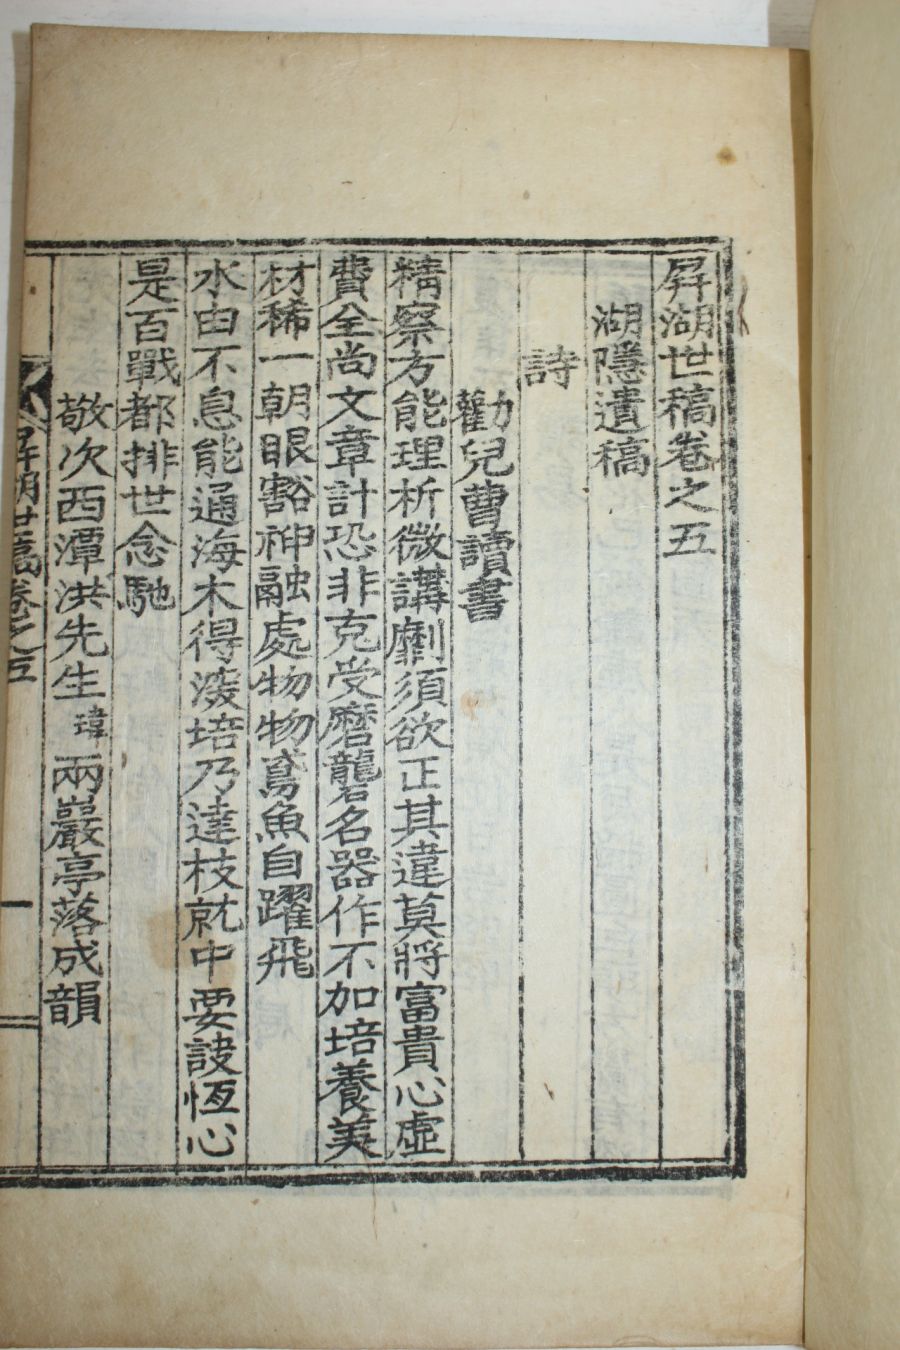 屛湖世稿卷之五
湖隱遺稿
詩
勸兒曹讀書
精察方能理析微講劘須欲正其違莫將富貴心虛
費全尚文章計恐非克受磨礱名器作不加培養美
材稀一朝眼豁神融處物物鳶魚自躍飛
水由不息能通海木得深培乃達枝就中要訣恆心
是百戰都排世念馳
敬次西潭洪先生瑋兩巖亭落成韻
屛湖世稿卷之五
一